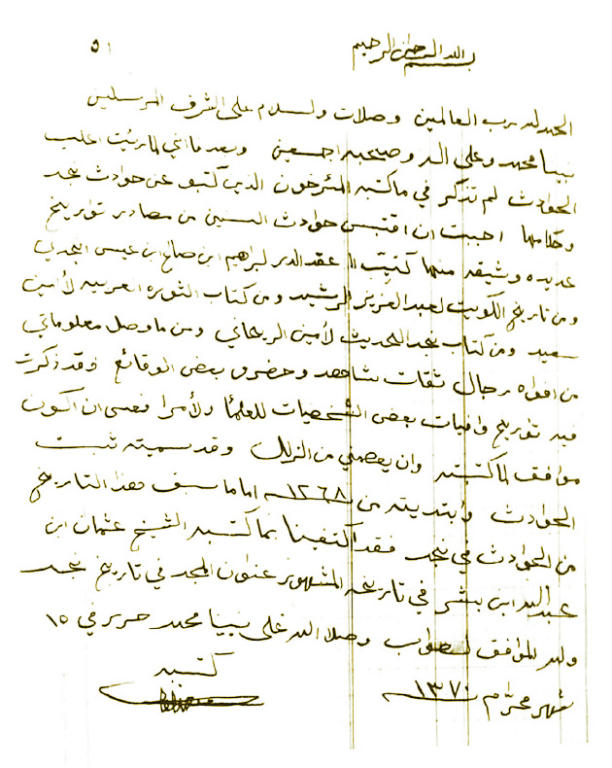 بسم الله الرحمن الرحيم
٥١
الحمد لله رب العالمين وصلات ولسلام على اشرف المرسلين
نبينا محمد وعلى اله وصحبه اجمعين وبعد فاني لما رئيت اغلب
الحوادث لم تذكر في ما كتبه المئرخون الذين كتبو عن حوادث نجد
وحكامها احببت ان اقتبس حوادث السنين من مصادر تواريخ
عديده وشيقه منها كتيب عقد الدرر لبراهيم ابن صالح ابن عيسى النجدي
ومن تاريخ الكويت لعبد العزيز الرشيد ومن كتاب الثوره العربيه لأمين
سعيد ومن كتاب نجد الحديث لأمين الريحاني ومن ما وصل معلوماتي
من افواه رجال ثقات شاهدو وحضرو بعض الوقائع وقد ذكرت
فيه توريخ وافيات بعض الشخصيات للعلمأ ولأمرا فعسى ان اكون
موافق لما كتبته وان يعصمني من الزلل وقد سميته ثبت
الحوادث وأبتديته من ١٢٦٨ اما ما سبق هذا التاريخ
من الحوادث في نجد فقد اكتفينا بما كتبه الشيخ عثمان ابن
عبد الله ابن بشر في تاريخه المشهور عنوان المجد في تاريخ نجد
ولله الموافق لصواب وصلا الله على نبينا محمد حرر في ١٥
شهر محرّم ١٣٧٠
كتبه